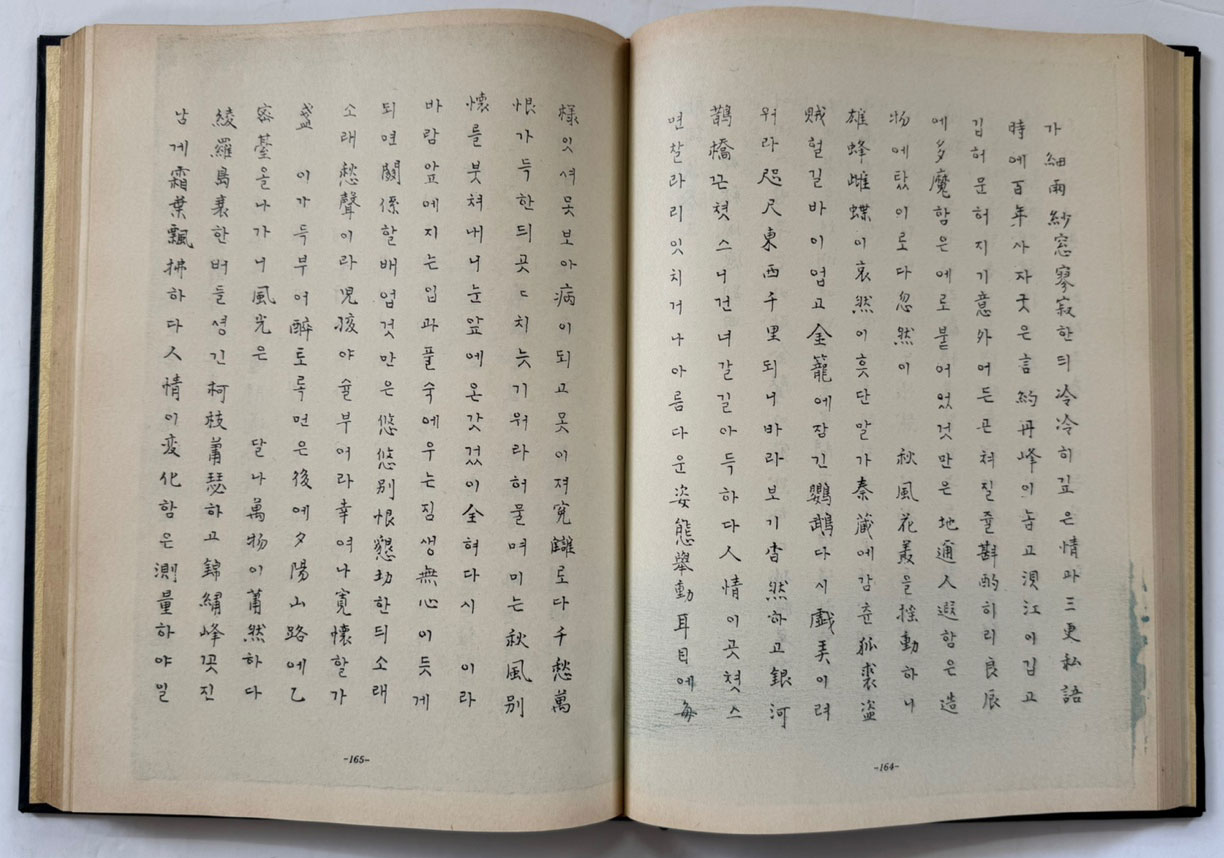 가 細雨紗窓寥寂한듸冷冷히깁은情과三更私語
時에百年사자굿은言約丹峰이놉고浿江이깁고
깁허문허지기意外어든끈쳐질줄斟酌히리良辰
에多魔함은에로붙어었것만은地邇人遐함은造
物에탔이로다忽然이 秋風花叢을搖動하니
雄蜂雌蝶이哀然이흣단말가秦藏에감춘狐裘盜
賊헐길바이업고金籠에잠긴鸚鵡다시戱美이려
워라咫尺東西千里되니바라보기杳然하고銀河
鵲橋끈쳣스니건녀갈길아득하다人情이곳쳣스
면찰라리잇치거나아름다운姿態擧動耳目에每
樣잇셔못보아病이되고못이져寃讎로다千愁萬
恨가득한듸곳ㄷ치늣기워라허물며미는秋風별
懷를붓쳐내니눈앞에온갓것이全혀다시 이라
바람앞에지는입과풀숙에우는짐생無心이듯게
되면關係할배업것만은悠悠別恨懇切한듸소래
소래愁聲이라児孩야술부어라幸여나寬懷할가
盞 이가득부어醉토록먹은後에夕陽山路에乙
密臺올나가니風光은 달나萬物이蕭然하다
綾羅島衰한버들셩긴柯枝蕭瑟하고錦繡峰꼿진
남게霜葉飄拂하다人情이変化함은測量하야일
-165-
-164-